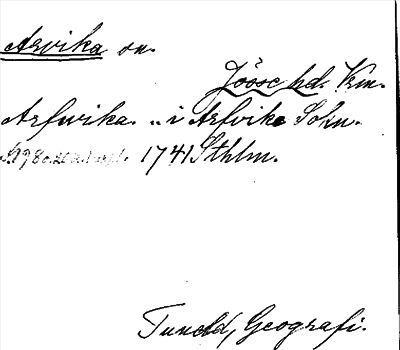 Arvika sn.
Jösse hd. Vrm.
Arfwika. „ i Arfvika Sokn.
1741 Sthlm.
Tuneld, Geografi.